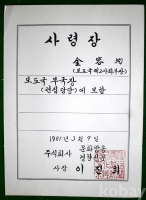 사령장
金容鈞
(보도국제2사회부장)
보도국 부국장
(편집담당)에 보함
1981년 3월 9일
주식회사 문화방송
경향신문
사장 이진희
kobay